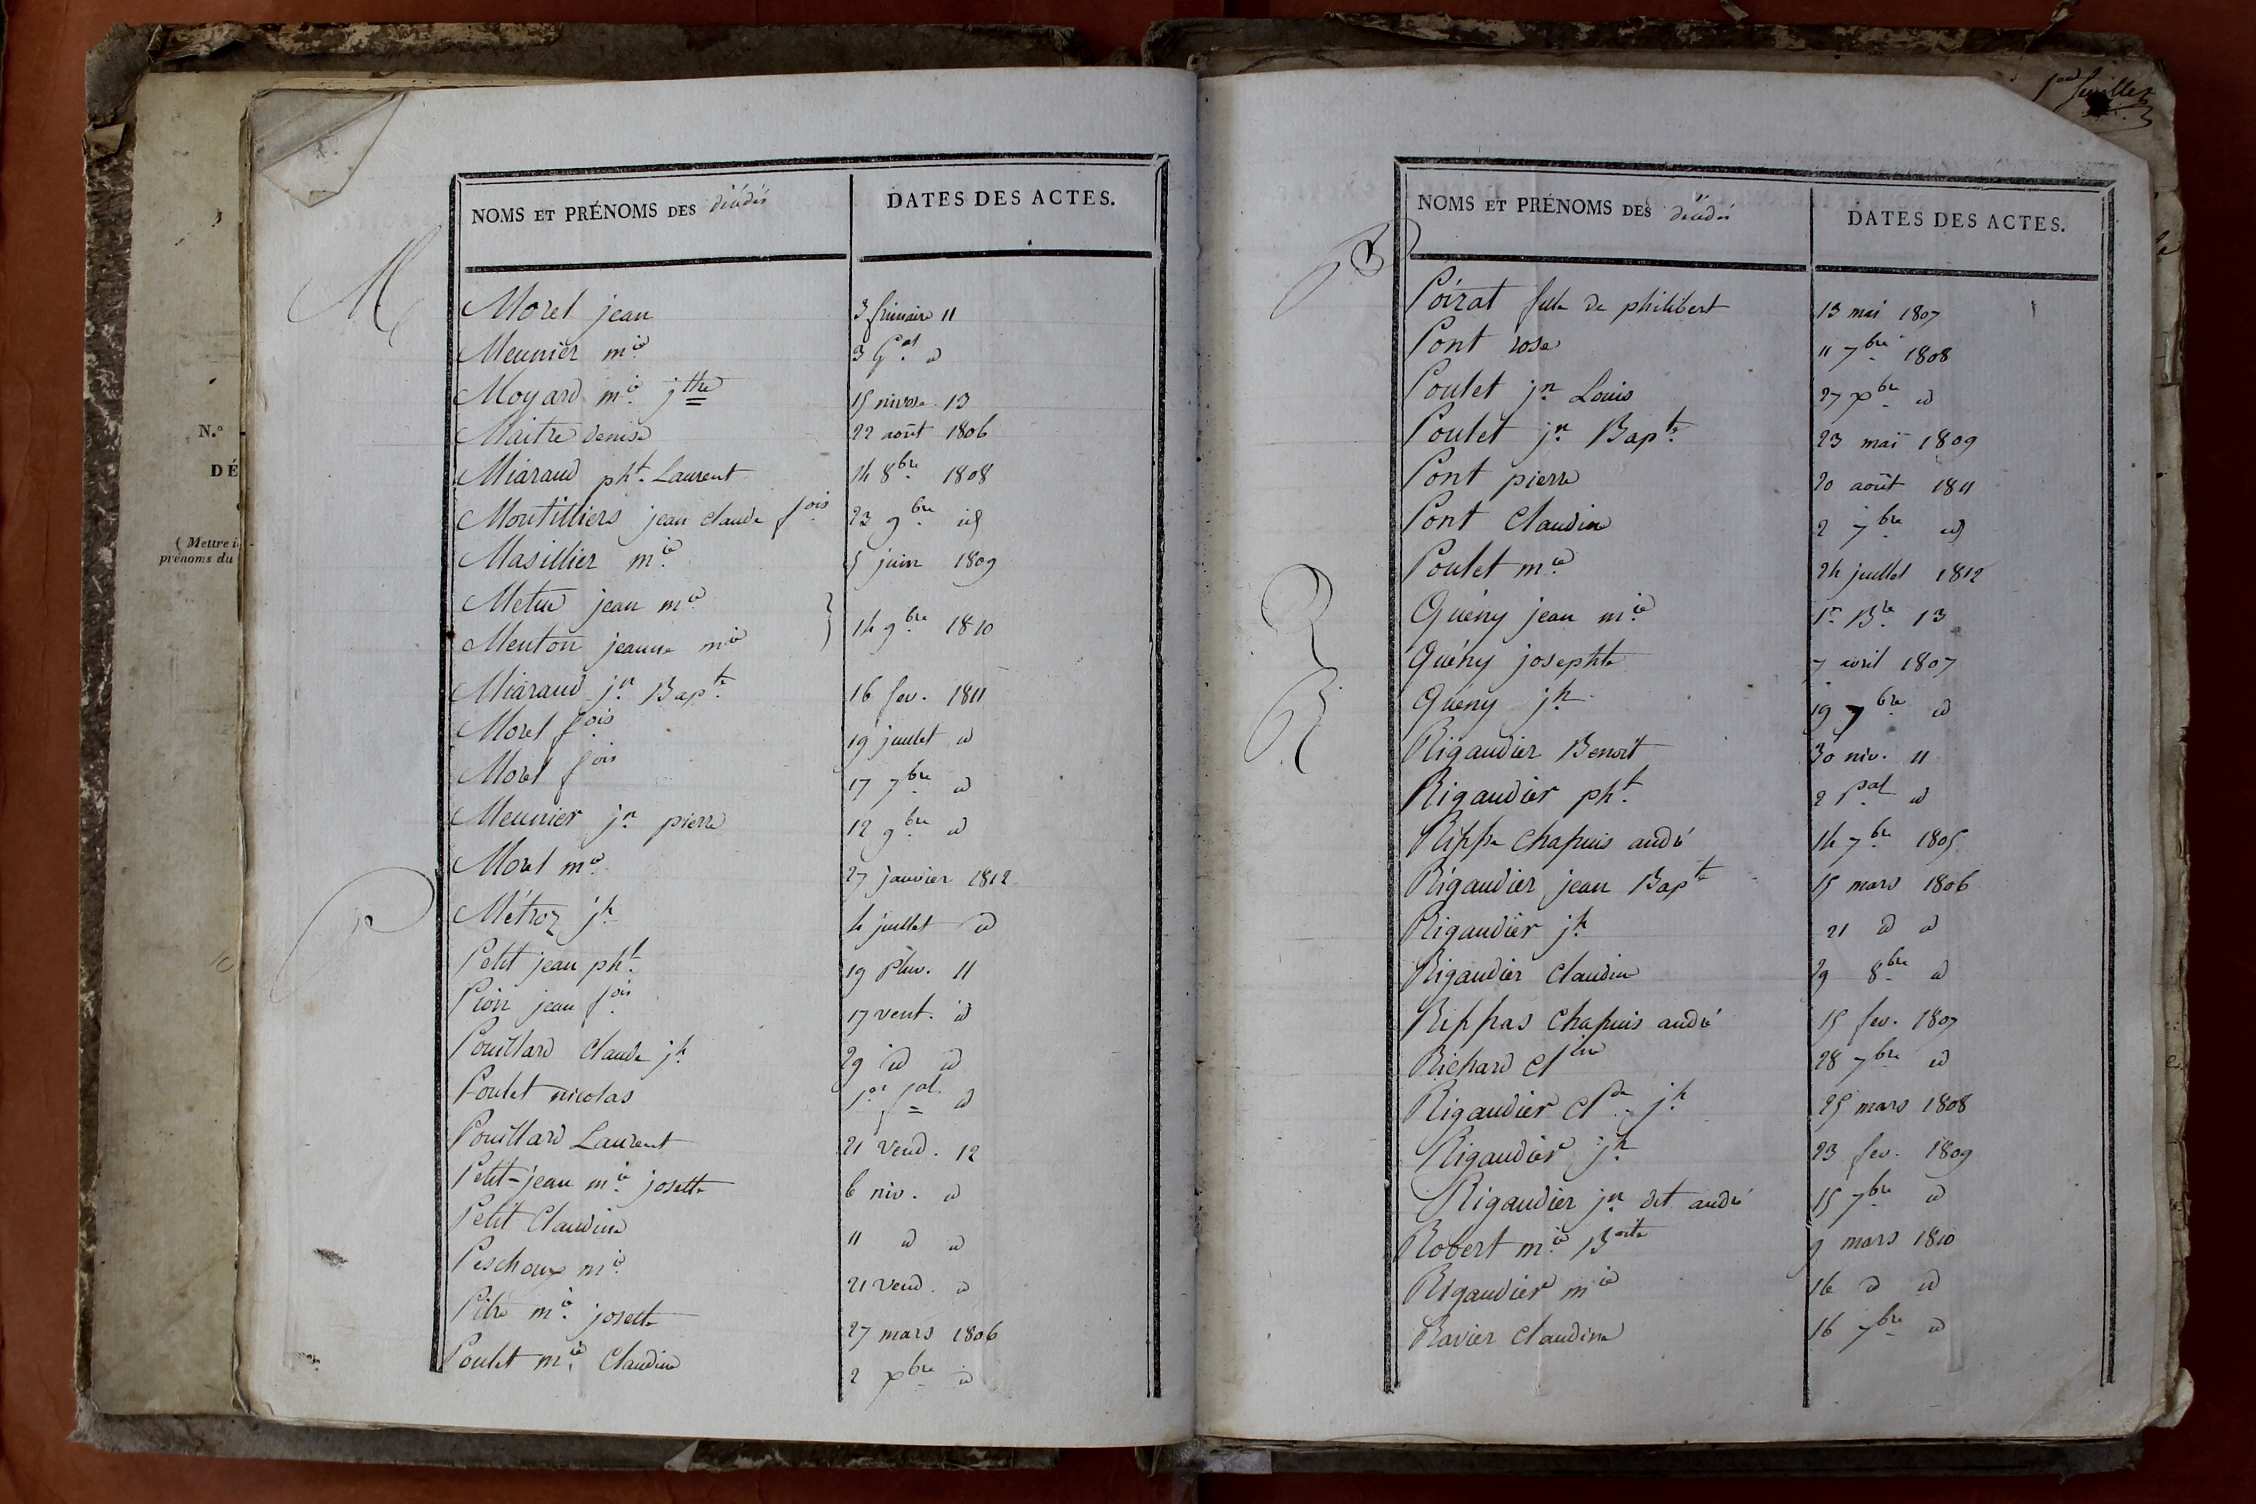 N.°
DÉ
(Mettre i
prénoms du
M
NOMS ET PRÉNOMS DES décédés DATES DES ACTES.
Morel jean 3 frimaire 11
Meunier mie 3 Gal id
Moyard mie jthe 15 nivose 13
Maitre denise 22 août 1806
Miaraud pht Laurent 14 8bre 1808
Montilliers jean claude fois 23 9bre id
Masillier mie 5 juin 1809
Metue jean mie
Menton jeanne mie 14 9bre 1810
Miaraud jn Bapte 16 fev. 1811
Morel fois 19 juillet id
Morel fois 17 7bre id
Meunier jn pierre 12 9bre id
Morel mie 27 janvier 1812
Métroz jh 4 juillet id
P
Petit jean pht 19 Pluv. 11
Pion jean fois 17 vent. id
Pouillard Claude jh 29 id id
Poulet nicolas 1er fal. id
Pouillard Laurent 21 Vend. 12
Petit-jean mie josette 6 niv. id
Petit Claudine 11 id id
Peschoux mie 21 vend. id
Pitre mie josette 27 mars 1806
Poulet mie Claudine 2 xbre id
feuillet
P
NOMS ET PRÉNOMS DES décédés DATES DES ACTES.
Poirat fils de philibert 13 mai 1807
Pont rose 11 7bre 1808
Poulet jn Louis 27 xbre id
Poulet jn Bapte 23 mai 1809
Pont pierre 20 août 1811
Pont Claudine 2 7bre id
Poulet mie 24 juillet 1812
Q
Quény jean mie 1er Bre 13
Quény josephte 7 avril 1807
Quény jh 19 7bre id
R
Rigaudier Benoit 30 niv. 11
Rigaudier pht 2 Pal id
Rippe chapuis andré 14 7bre 1805
Rigaudier jean Bapte 15 mars 1806
Rigaudier jh 21 id id
Rigaudier Claudine 29 8bre id
Rippas Chapuis andré 15 fev. 1807
Richard Cline 28 7bre id
Rigaudier Clde jh 25 mars 1808
Rigaudier jh 23 fev. 1809
Rigaudier jn dit andré 15 7bre id
Robert mie Boite 9 mars 1810
Rigaudier mie 16 id id
Ravier Claudine 16 7bre id